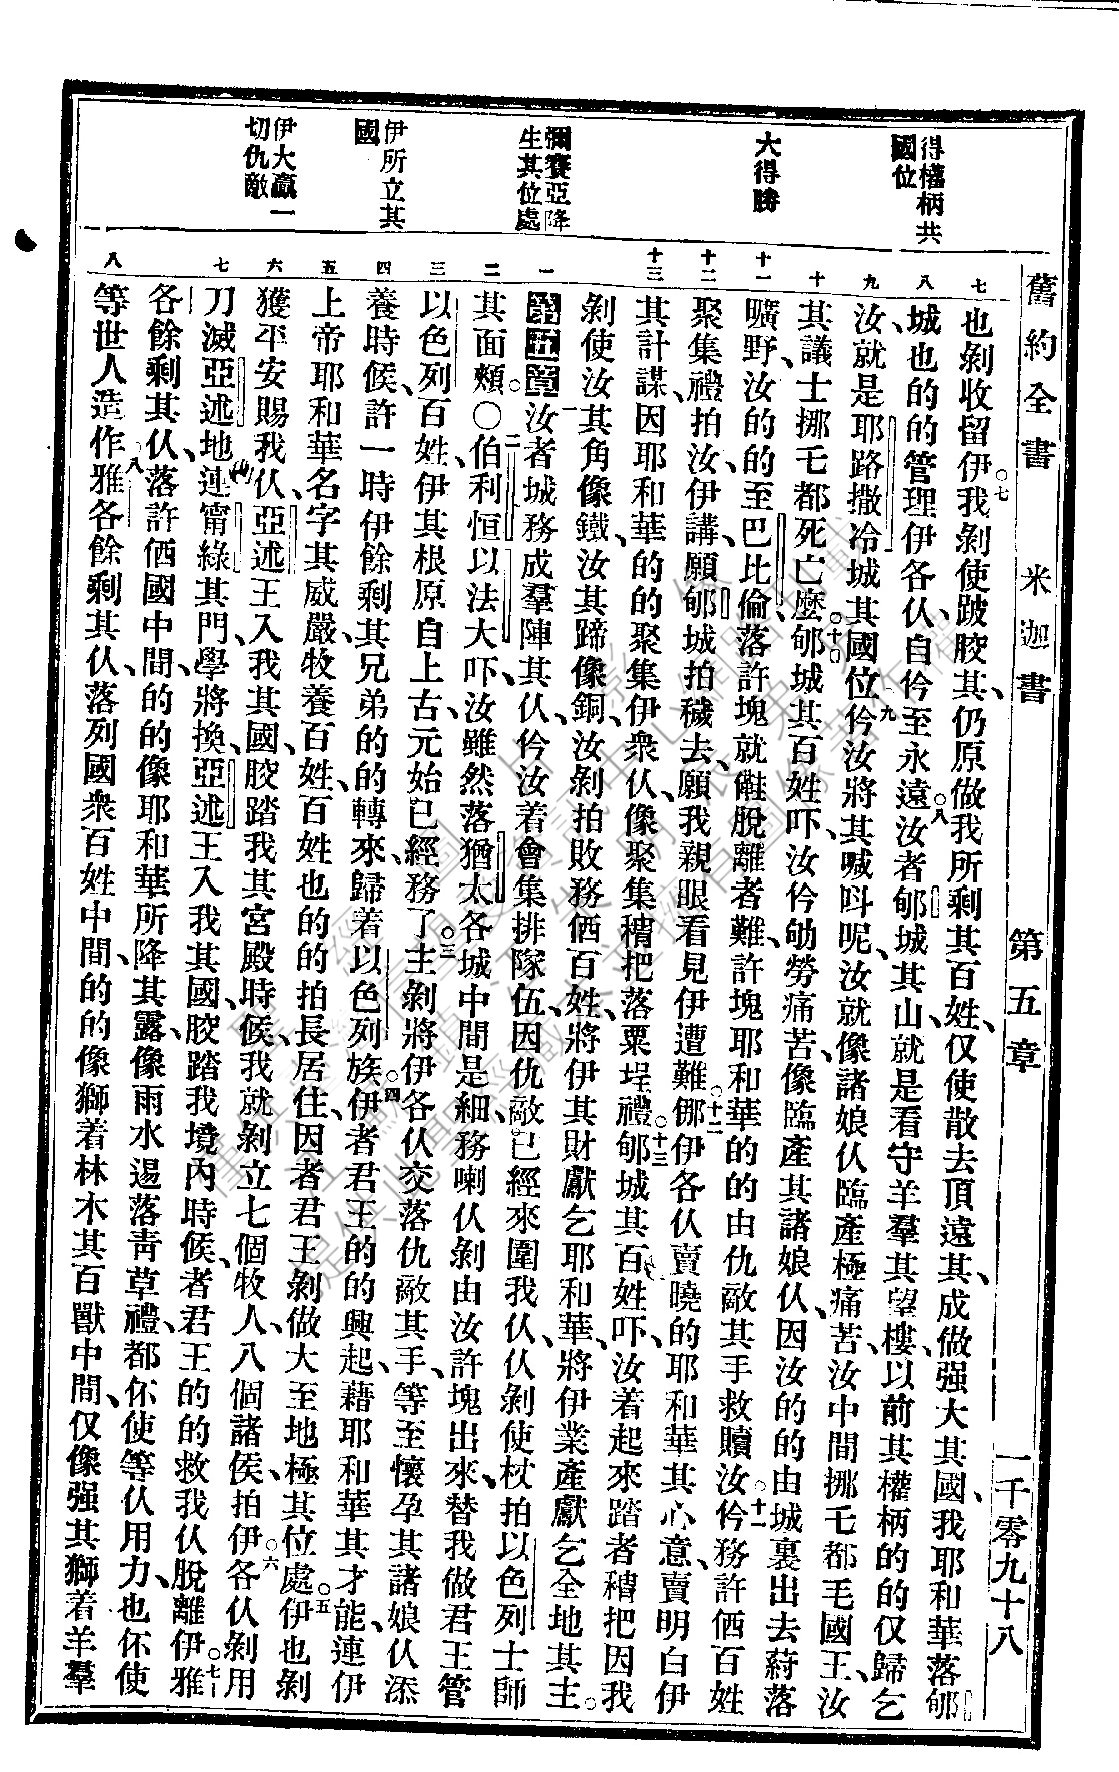 舊約全書 米迦書 第五章 一千零九十八
得權柄共
國位
大得勝
彌賽亞降
生其位處
伊所立其
國
伊大贏一
切仇敵
七 八 九 十 十一 十二 十三 一 二 三 四 五 六 七 八
也剝收留伊我剝使跛胶其仍原做我所剩其百姓仅使散去頂遠其成做强大其國我耶和華落郇
城也的的管理伊各仈自伶至永遠汝者郇城其山就是看守羊羣其望樓以前其權柄的的仅歸乞
汝就是耶路撒冷城其國位伶汝將其喊呌呢汝就像諸娘仈臨產極痛苦汝中間挪乇都毛國王汝
其議士挪乇都死亡麽郇城其百姓吓汝伶劬勞痛苦像臨產其諸娘仈因汝的的由城裏出去
曠野汝的的至巴比倫落許塊就脫離者難許塊耶和華的的由仇敵其手救贖汝伶務許百姓
聚集禮拍汝伊講願郇城拍穢去願我親眼看見伊遭難伊各仈賣曉的耶和華其心意賣明白伊
其計謀因耶和華的的聚集伊衆仈像聚集䅵把落粟埕禮郇城其百姓吓汝着起來踏者䅵把因我
剝使汝其角像鐵汝其蹄像銅汝剝拍敗務百姓將伊其財獻乞耶和華將伊業產獻乞全地其主
第五章汝者城務成羣陣其仈伶汝着會集排隊伍因仇敵已經來圍我仈仈剝使杖拍以色列士師
其面頰○伯利恒以法大吓汝雖然落猶太各城中間是細務喇仈剝由汝許塊出來替我做君王管
以色列百姓伊其根原自上古元始已經務了主剝將伊各仈交落仇敵其手等至懷孕其諸娘仈添
養時候許一時伊餘剩其兄弟的的轉來歸着以色列族伊者君王的的興起藉耶和華其才能連伊
上帝耶和華名字其威嚴牧養百姓百姓也的的拍長居住因者君王剝做大至地極其位處伊也剝
獲平安賜我仈亞述王入我其國胶踏我其宮殿時候我就剝立七個牧人八個諸侯拍伊各仈剝用
刀滅亞述地連甯綠其門學將換亞述王入我其國胶踏我境內時候者君王的的救我仈脫離伊雅
各餘剩其仈落許國中間的的像耶和華所降其露像雨水逿落靑草禮都伓使等仈用力也伓使
等世人造作雅各餘剩其仈落列國衆百姓中間的的像獅着林木其百獸中間仅像强其獅着羊羣